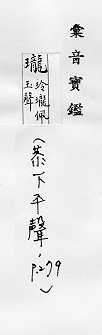 彙音寶鑑
瓏 玲瓏佩
玉聲
(恭下平聲,
p.279)